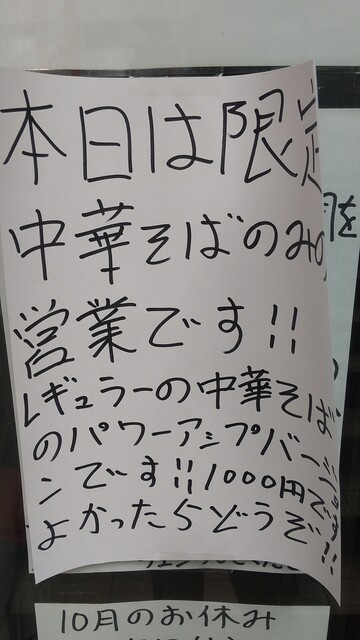 本日は限定
中華そばのみの
営業です!!
レギュラーの中華そば
のパワーアップバージョ
ンです!!1000円です
よかったらどうぞ!!
を
10月のお休み